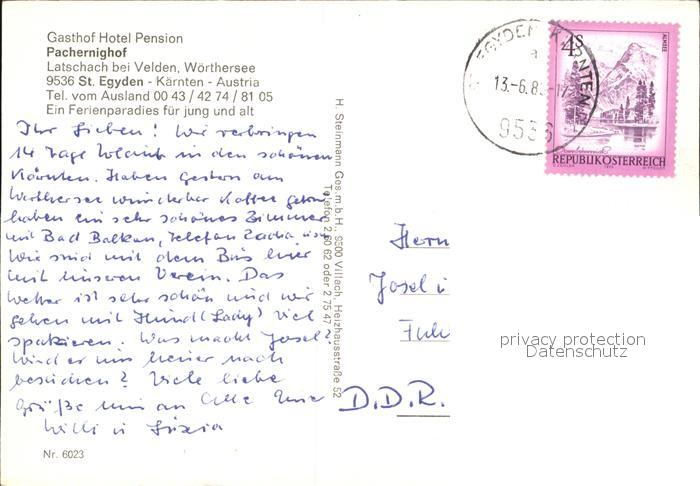 Gasthof Hotel Pension
Pachernighof
Latschach bei Velden, Wörthersee
9536 St. Egyden - Kärnten - Austria
Tel. vom Ausland 00 43 / 42 74 / 81 05
Ein Ferienparadies für jung und alt
Ihr Lieben! Wir verbringen
14 Tage Urlaub in den schönen
Kärnten. Haben gestern am
Wörthersee wunderbar Kaffee getrun
haben ein sehr schönes Zimmer
mit Bad Balkon, Telefon Radio usw
Wir sind mit dem Bus hier
mit unseren Verein. Das
Wetter ist sehr schön und wir
gehen mit Hund (Lady) viel
spazieren. Was macht Josef?
Wird er uns hier noch
besuchen? Viele liebe
Grüße nun an Alle Eure
Willi u
Nr. 6023
H. Steinmann Ges.m.b.H. 9500 Villach, Heizhausstraße 52
Telefon 2 60 62 oder 2 75 47
ST. EGYDEN, KÄRNTEN
a
13.-6.8
9536
4S
ALMSEE
REPUBLIK ÖSTERREICH
Herrn
Josef u
Fuh
D.D.R.
privacy protection
Datenschutz